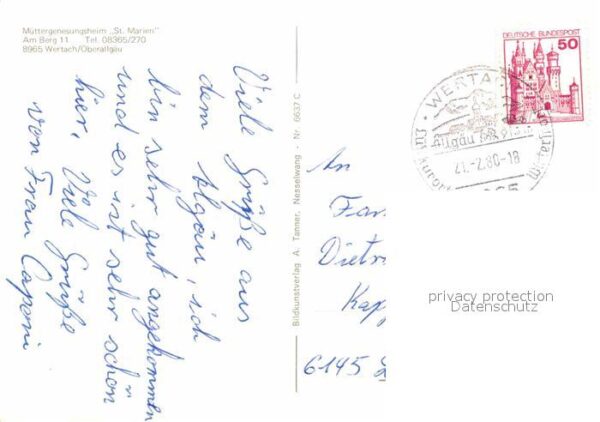 Müttergenesungsheim „St. Marien"
Am Berg 11 Tel. 08365/270
8965 Wertach/Oberallgäu
Viele Grüße aus
dem Algäu, ich
bin sehr gut angekommen
und es ist sehr schön
hier, Viele Grüße
von Frau Caponi
Bildkunstverlag A. Tanner, Nesselwang - Nr. 6637 C
DEUTSCHE BUNDESPOST
50
WERTA
21.-2.80-18
An
Fam
Dietr
Kap
6145
privacy protection
Datenschutz